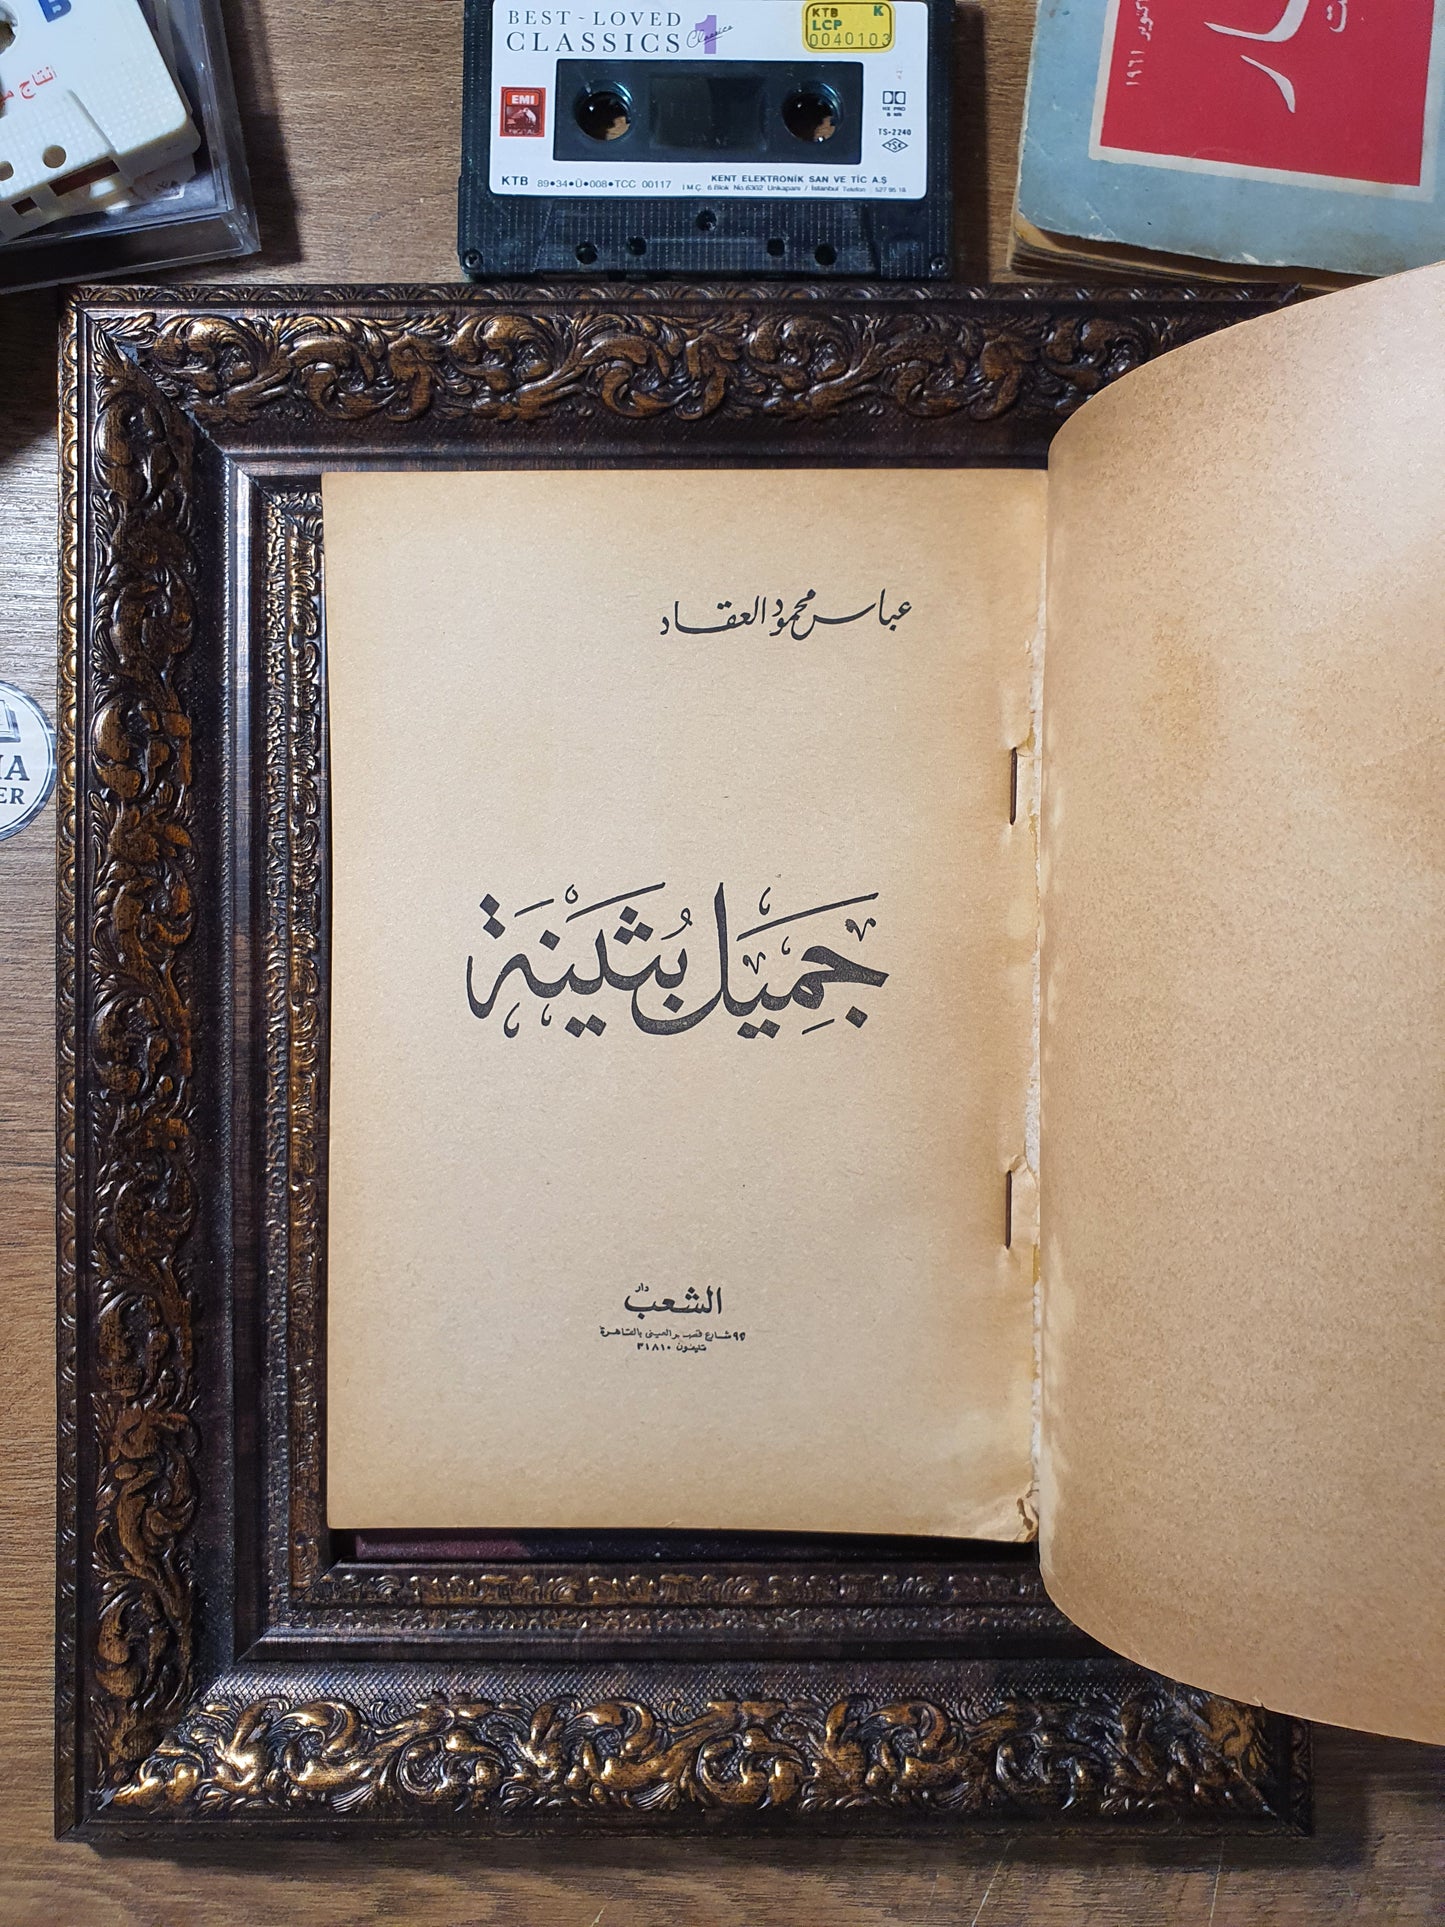 B
انتاج
BEST ~ LOVED
CLASSICS 1
Classics
KTB K
LCP
0040103
EMI
DIGITAL
HX PRO
B NR
TS-2240
TSK
KENT ELEKTRONİK SAN VE TİC A.Ş
KTB 89•34•Ü•008•TCC 00117
İ.M.Ç. 6.Blok No.6302 Unkapanı / İstanbul Telefon : 527 95 18
أكتوبر ١٩٦١
عباس محمود العقاد
جَمِيل بُثَيْنَة
دار
الشعب
٩٢ شارع قصر العينى بالقاهرة
تليفون ٣١٨١٠
IA
ER